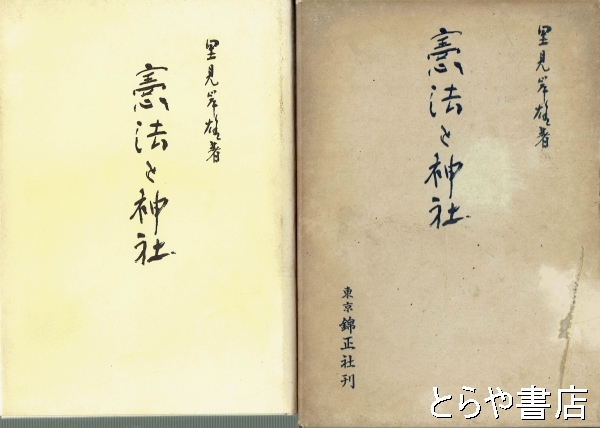 里見岸雄著
憲法と神社
里見岸雄著
憲法と神社
東京 錦正社刊
とらや書店